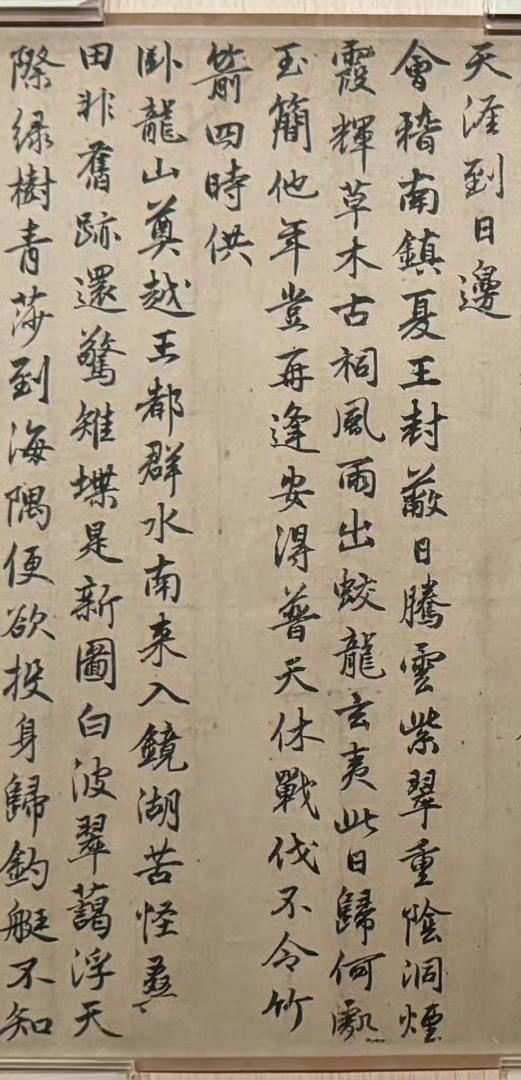 天涯到日邊
會稽南鎮夏王封蔽日騰雲紫翠重陰洞煙
霞輝草木古祠風雨出蛟龍玄夷此日歸何處
玉簡他年豈再逢安得普天休戰伐不令竹
箭四時供
臥龍山奠越王都群水南来入鏡湖苦怪桑
田非舊跡還驚雉堞是新圖白波翠藹浮天
際綠樹青莎到海隅便欲投身歸釣艇不知